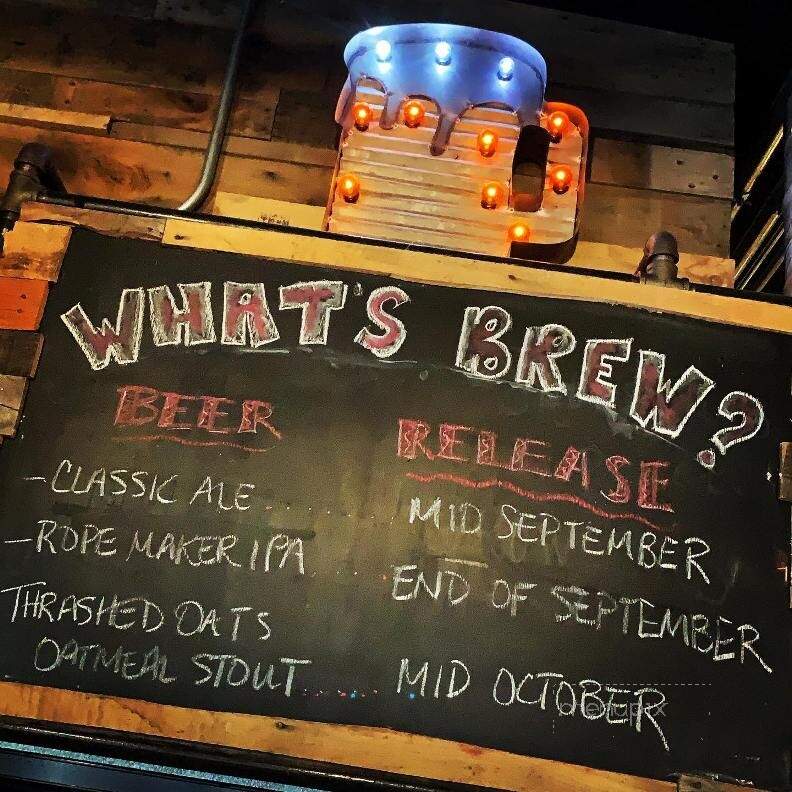 WHAT'S BREW?
BEER RELEASE
-CLASSIC ALE........... MID SEPTEMBER
-ROPE MAKER IPA...... END OF SEPTEMBER
THRASHED OATS
OATMEAL STOUT........ MID OCTOBER
menupix